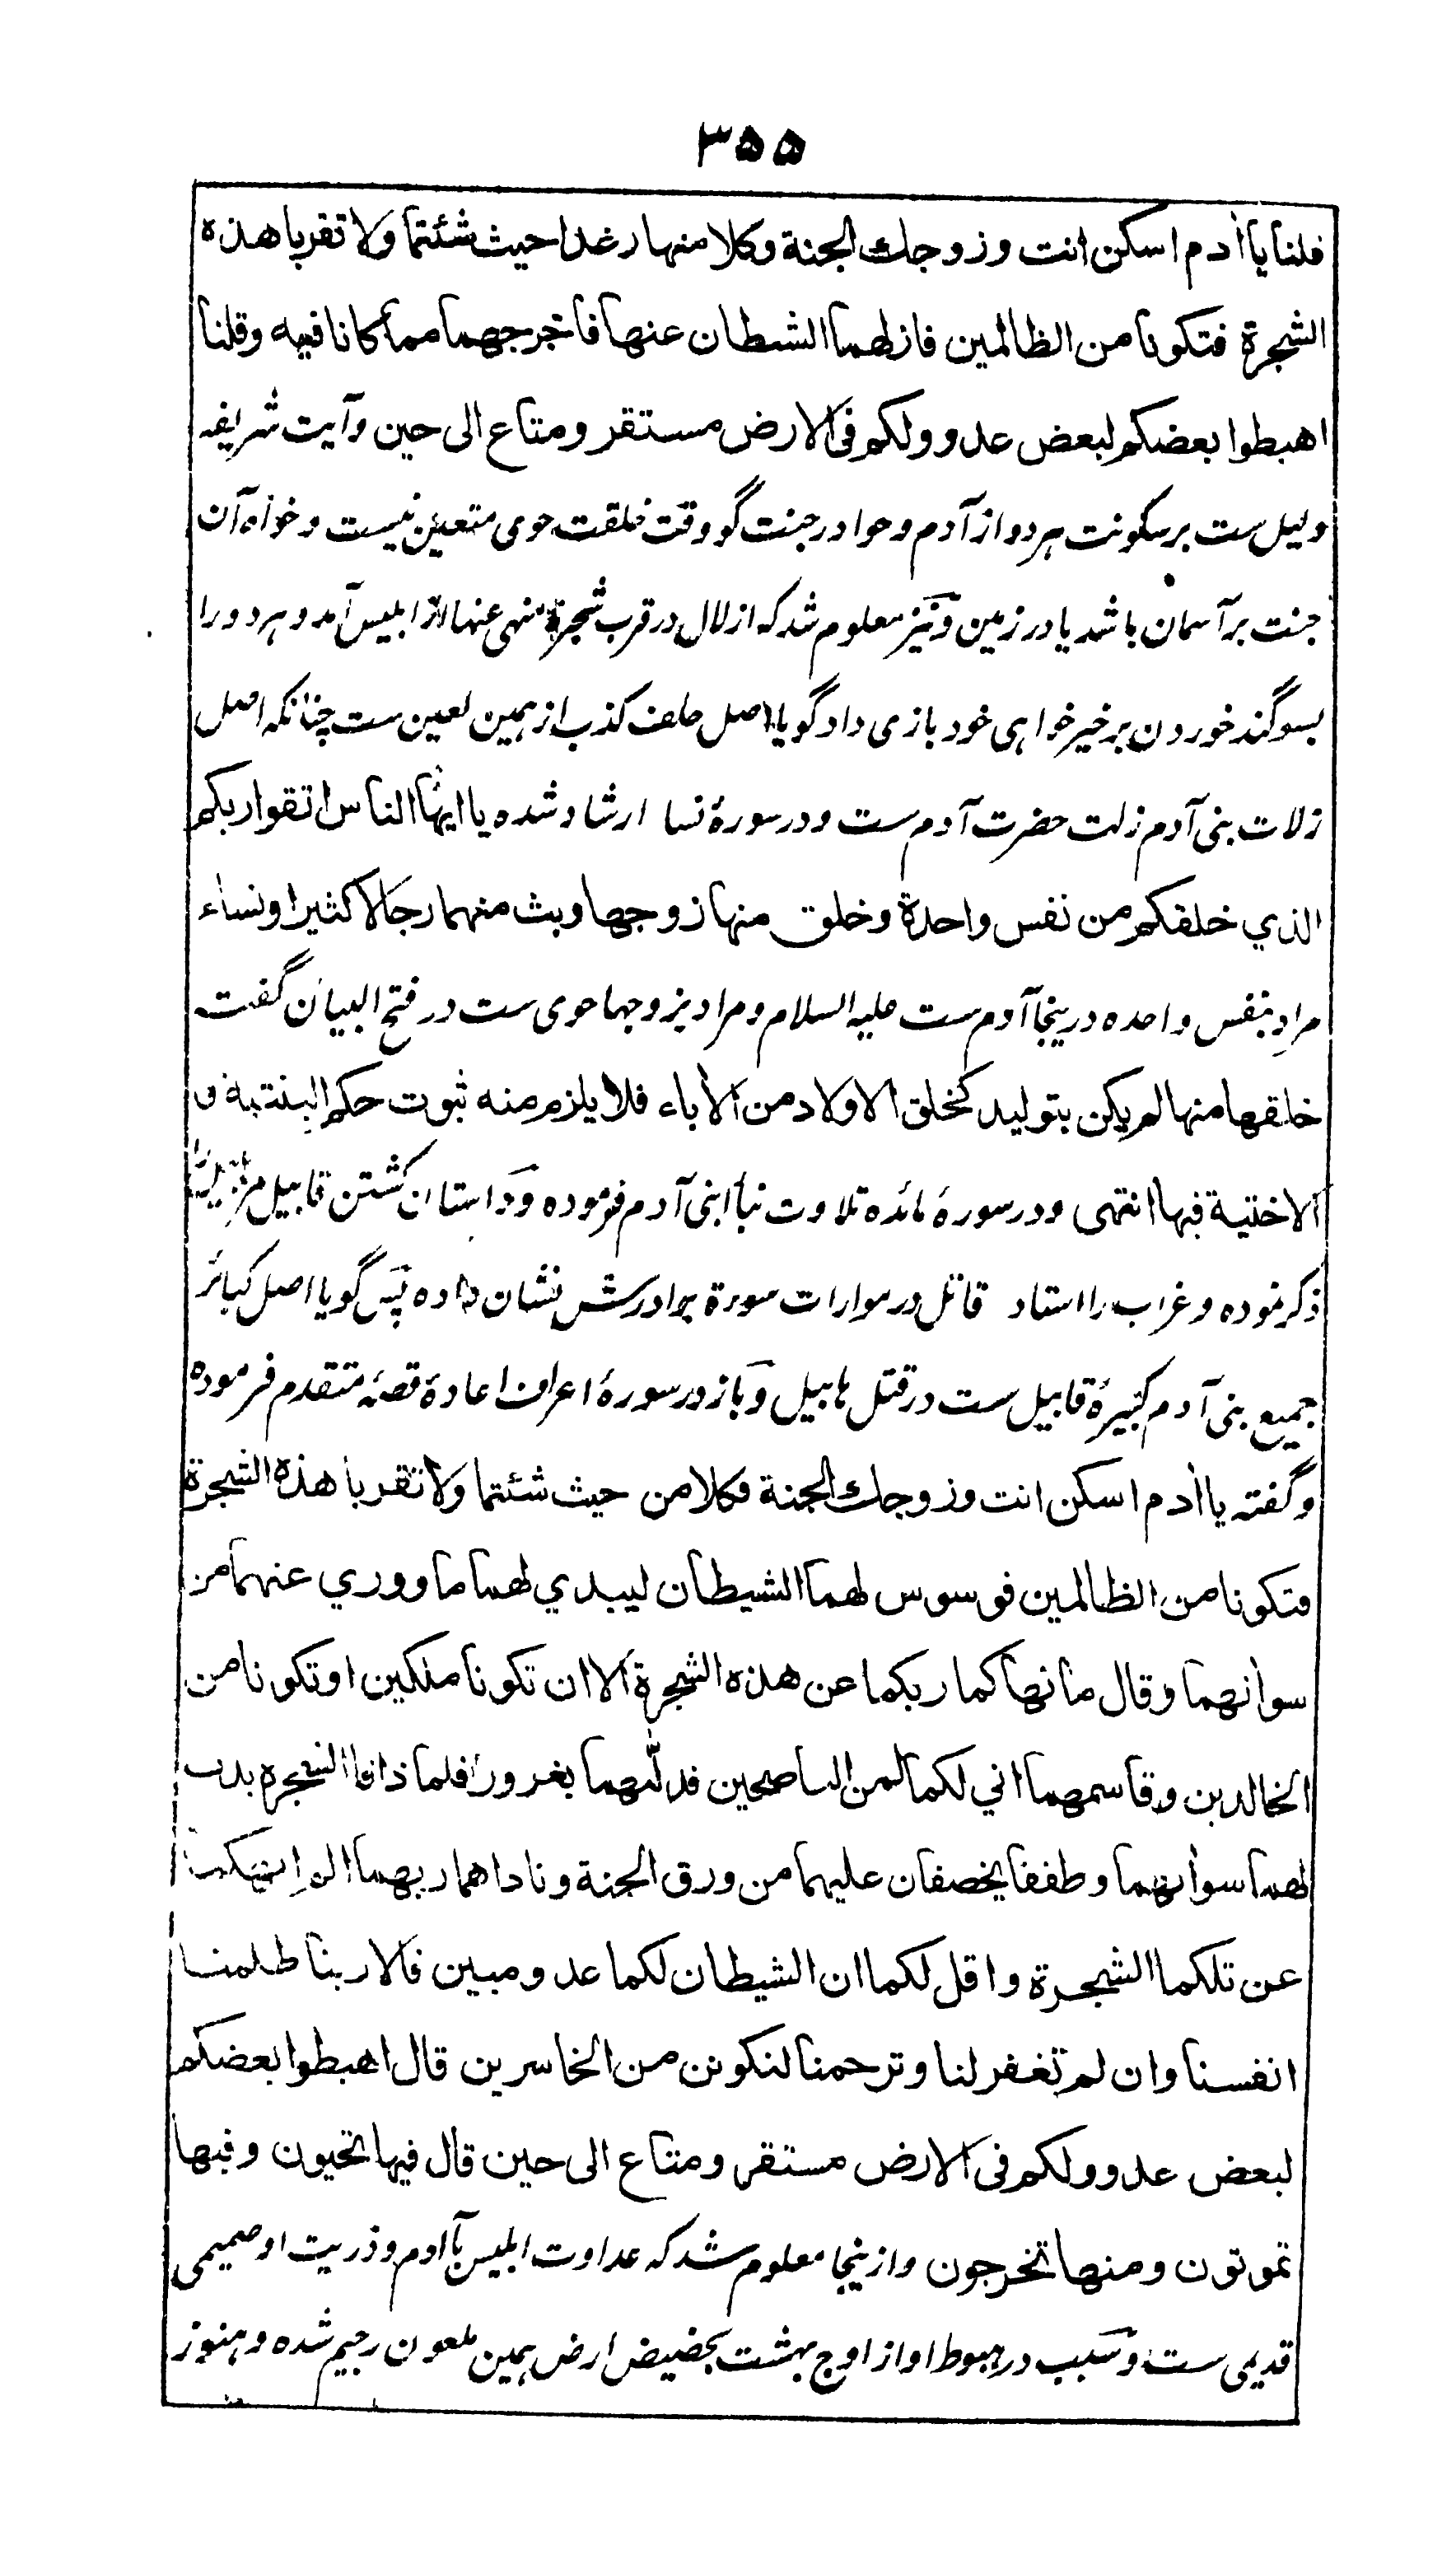 ۳۵۵
قلنا یا أدم اسکن انت وزوجك الجنة وکلا منها رغدا حیث شئتما ولا تقربا هذه
الشجرة فتکونا من الظالمین فازلهما الشیطان عنها فاخرجهما مما کانا فیه وقلنا
اهبطوا بعضکم لبعض عدو ولکم فی الارض مستقر ومتاع الی حین وآیت شریفه
دلیل ست بر سکونت هر دو از آدم و حوا در جنت گو وقت خلقت حوی متعین نیست و خواه آن
جنت بر آسمان باشد یا در زمین و نیز معلوم شد که ازلال در قرب شجرهٔ منهی عنها از ابلیس آمد و هر دو را
بسوگند خوردن بر خیر خواهی خود بازی داد گویا اصل حلف کذب از همین لعین ست چنانکه اصل
زلات بنی آدم زلت حضرت آدم ست و در سورهٔ نسا ارشاد شده یا ایها الناس اتقوا ربکم
الذي خلقکم من نفس واحدة وخلق منها زوجها وبث منهما رجالا کثیرا ونساء
مراد بنفس واحده درینجا آدم ست علیه السلام و مراد بزوجها حوی ست در فتح البیان گفت
خلقها منها لم یکن بتولید کخلق الاولاد من الأباء فلا یلزم منه ثبوت حکم البنتیة و
الاختیة فیها انتهی و در سورهٔ مائده تلاوت نبأ ابنی آدم فرموده و داستان کشتن قابیل مر هابیل را
ذکر نموده و غراب را استاد قاتل در موارات سوءة برادرش نشان داده پس گویا اصل کبائر
جمیع بنی آدم کبیرهٔ قابیل ست در قتل هابیل و باز در سورهٔ اعراف اعادهٔ قصهٔ متقدم فرموده
وگفته یا أدم اسکن انت وزوجك الجنة فکلا من حیث شئتما ولا تقربا هذه الشجرة
فتکونا من الظالمین فوسوس لهما الشیطان لیبدي لهما ما ووري عنهما من
سوأتهما وقال ما نهاکما ربکما عن هذه الشجرة الا ان تکونا ملکین او تکونا من
الخالدین وقاسمهما اني لکما لمن الناصحین فدلّٰهما بغرور فلما ذاقا الشجرة بدت
لهما سوأتهما وطفقا یخصفان علیهما من ورق الجنة وناداهما ربهما الم انهکما
عن تلکما الشجرة واقل لکما ان الشیطان لکما عدو مبین قالا ربنا ظلمنا
انفسنا وان لم تغفر لنا وترحمنا لنکونن من الخاسرین قال اهبطوا بعضکم
لبعض عدو ولکم فی الارض مستقر ومتاع الی حین قال فیها تحیون وفیها
تموتون ومنها تخرجون و ازینجا معلوم شد که عداوت ابلیس با آدم و ذریت او صمیمی
قدیمی ست و سبب در هبوط او از اوج بهشت بحضیض ارض همین ملعون رجیم شده و هنوز